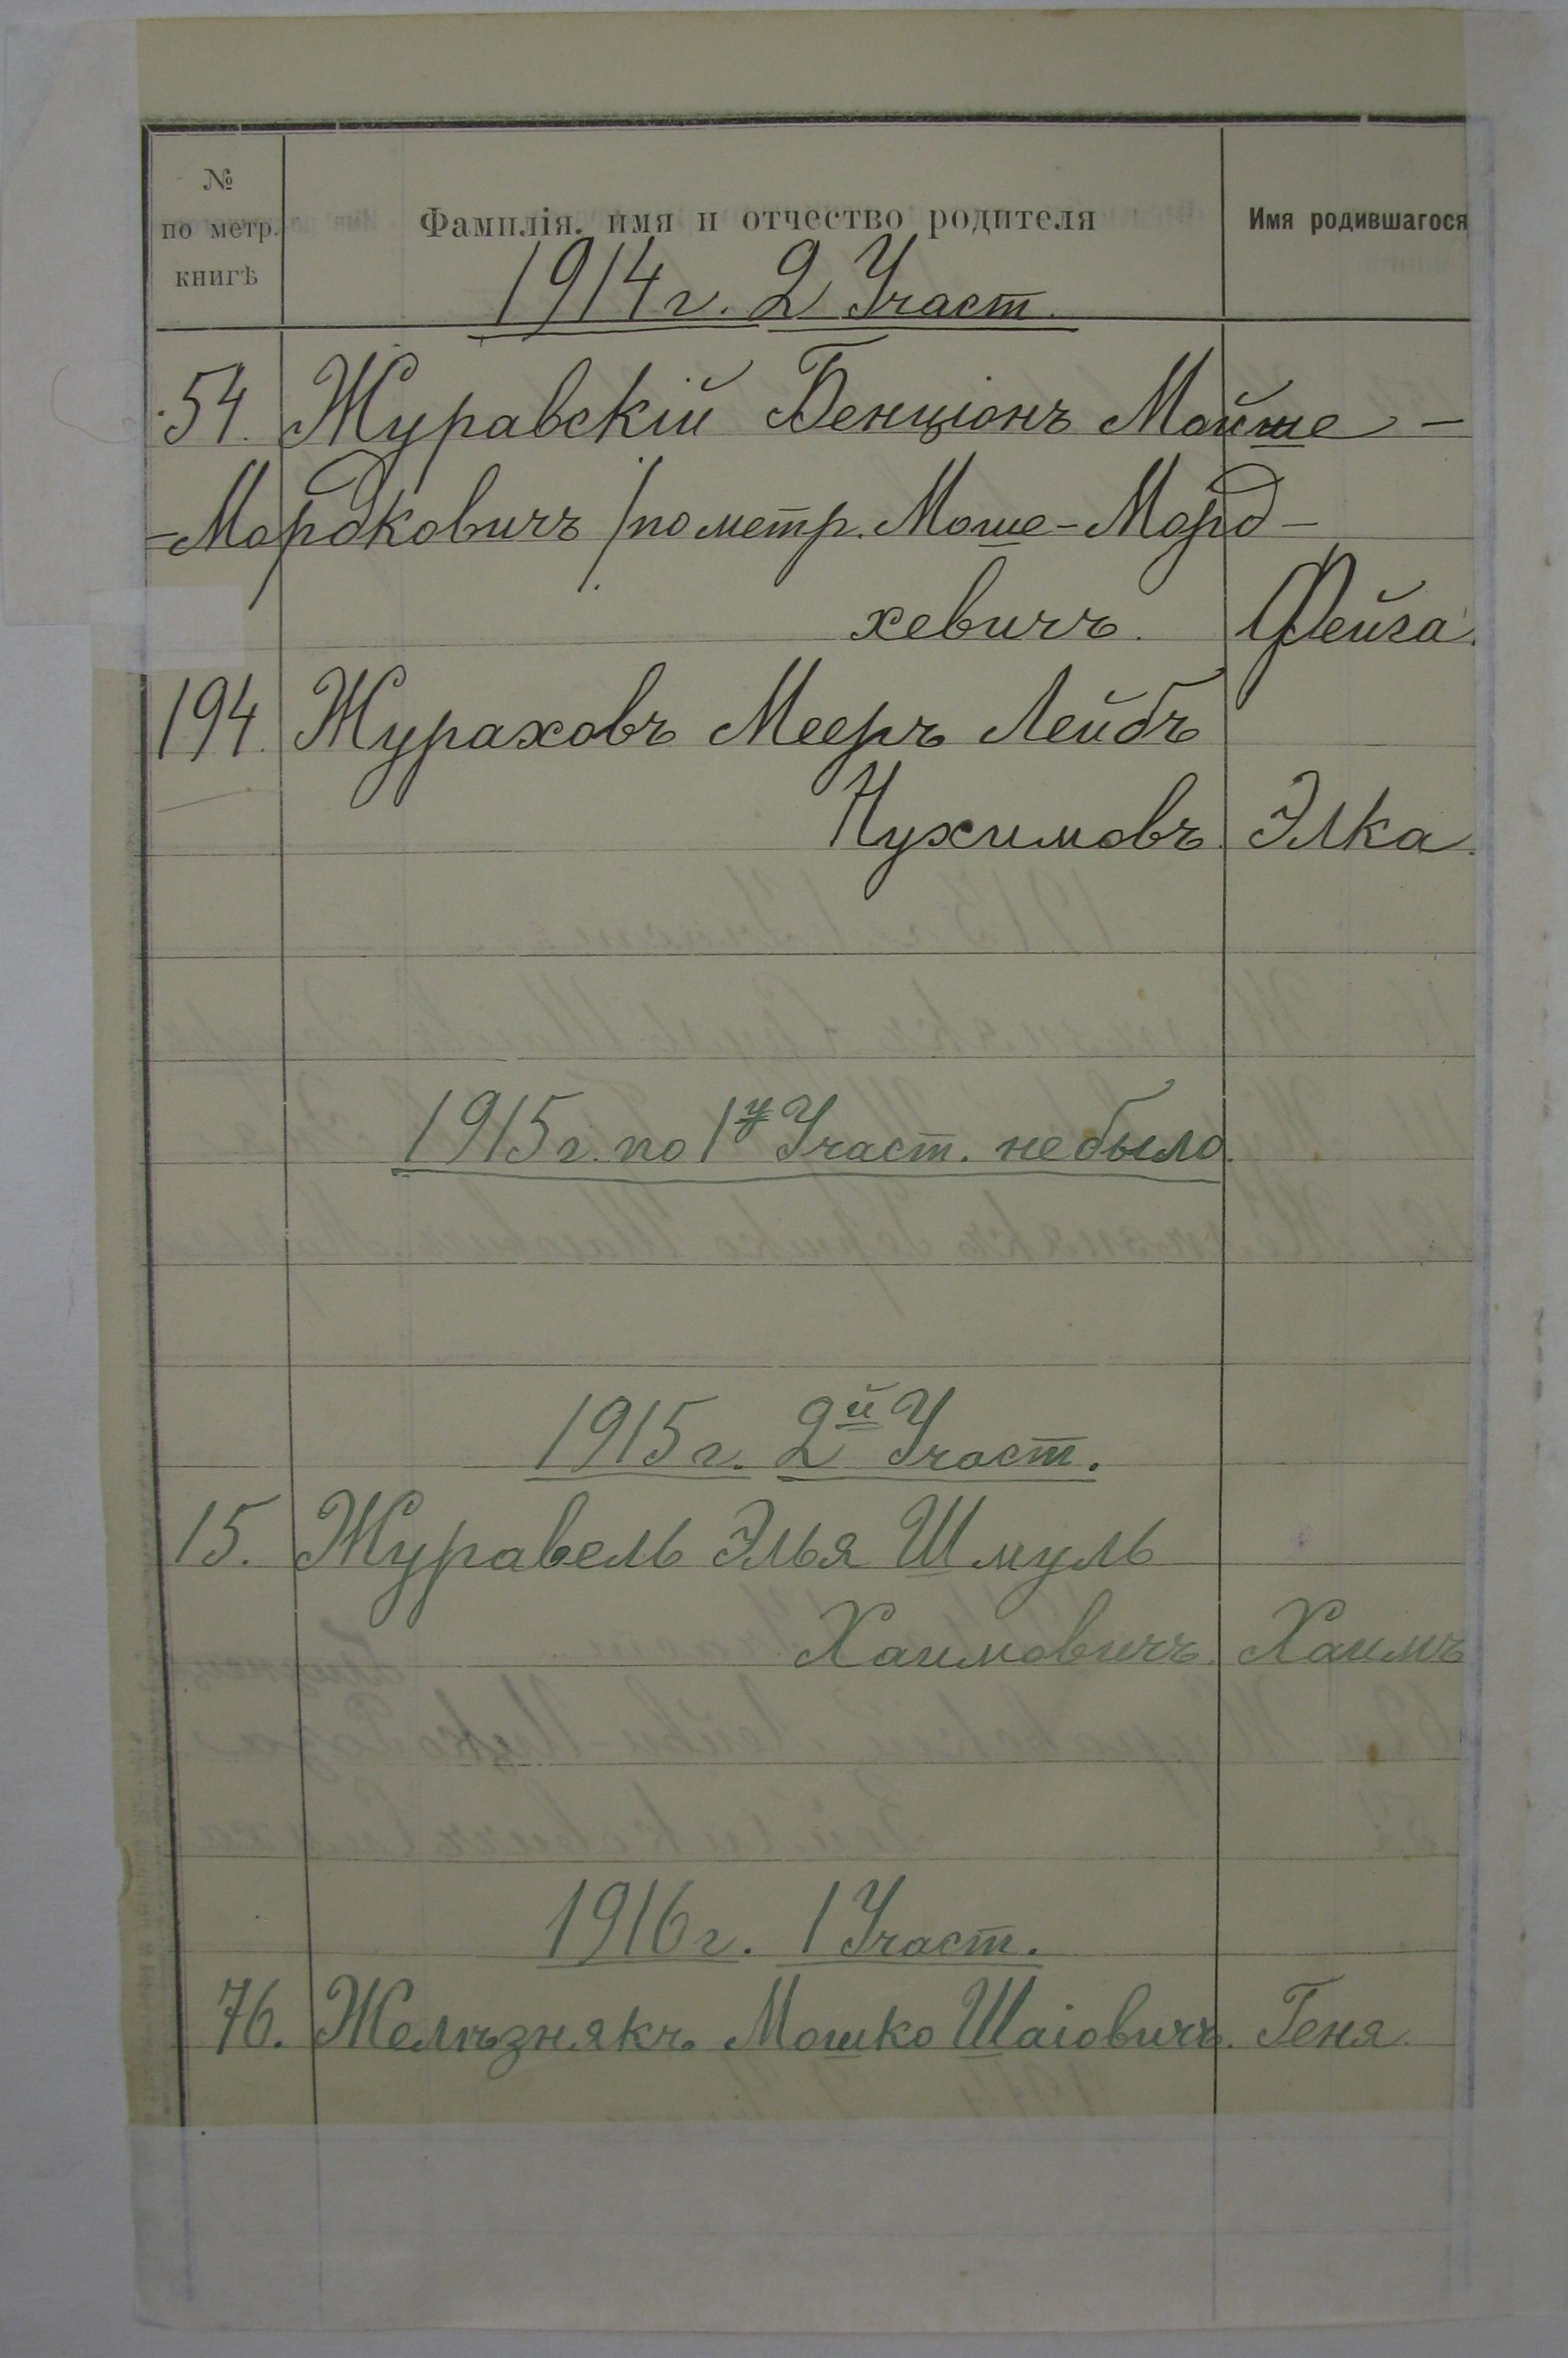 № по метр. книгѣ
Фамилія, имя и отчество родителя
Имя родившагося
1914 г. 2 Участ.
54. Журавскій Бенціонъ Мойше -
- Мордковичъ / по метр. Моше - Морд -
хевичъ. Фейга.
194. Жураховъ Мееръ Лейбъ
Нухимовъ Элка.
1915 г. по 1у Участ. не было.
1915 г. 2й Участ.
15. Журавель Элья Шмуль
Хаимовичъ. Хаимъ
1916 г. 1 Участ.
76. Желѣзнякъ Мошко Шаіовичъ. Геня.